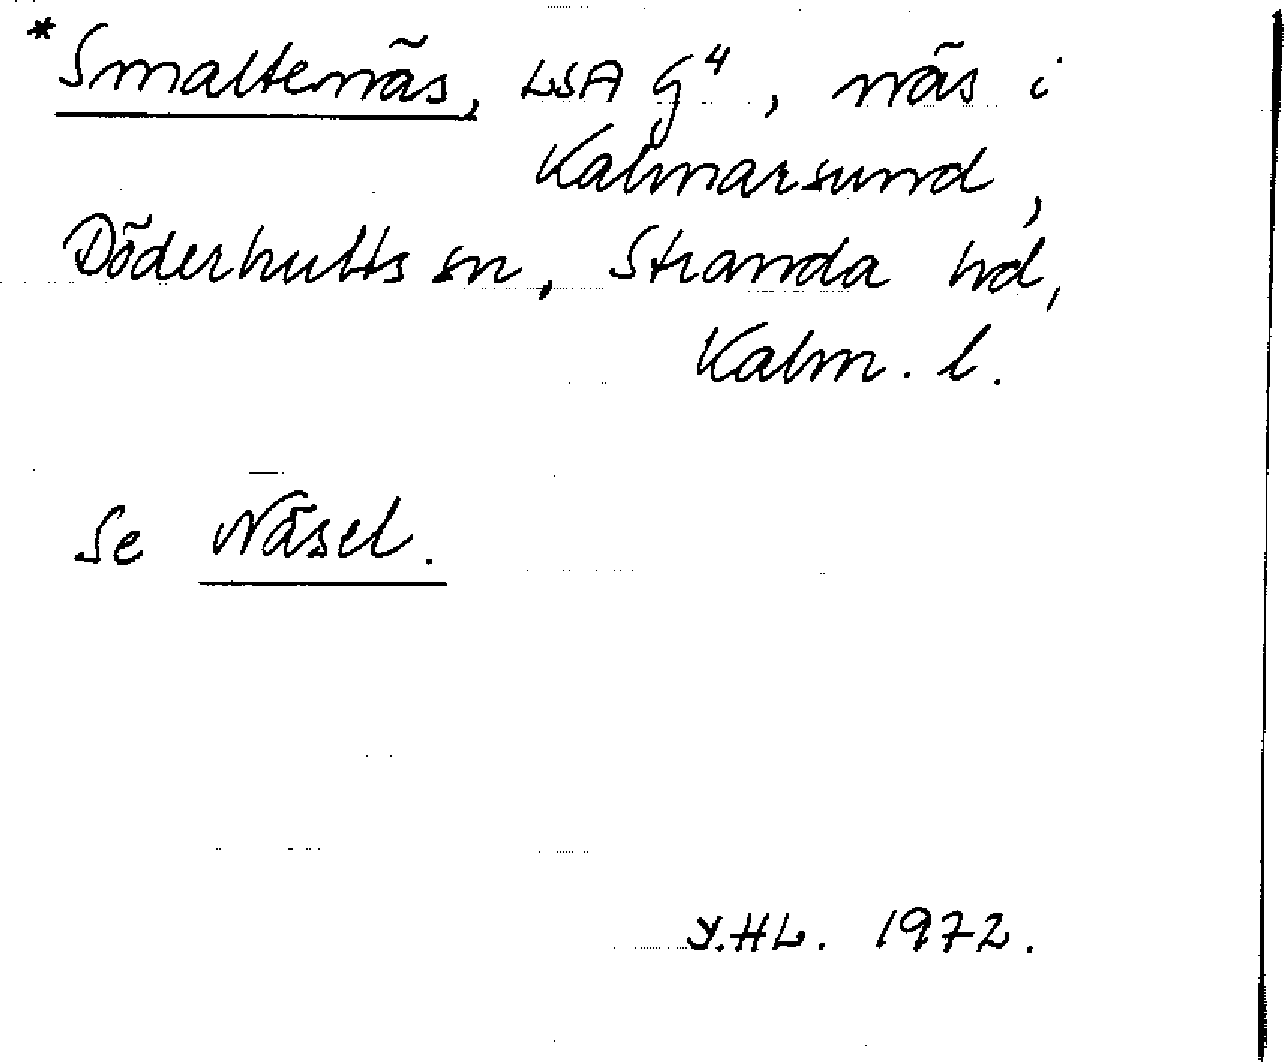 * Smaltenäs, LSA G⁴, näs i
Kalmarsund,
Döderhults sn, Stranda hd,
Kalm. l.
Se Näsel.
Y.HL. 1972.